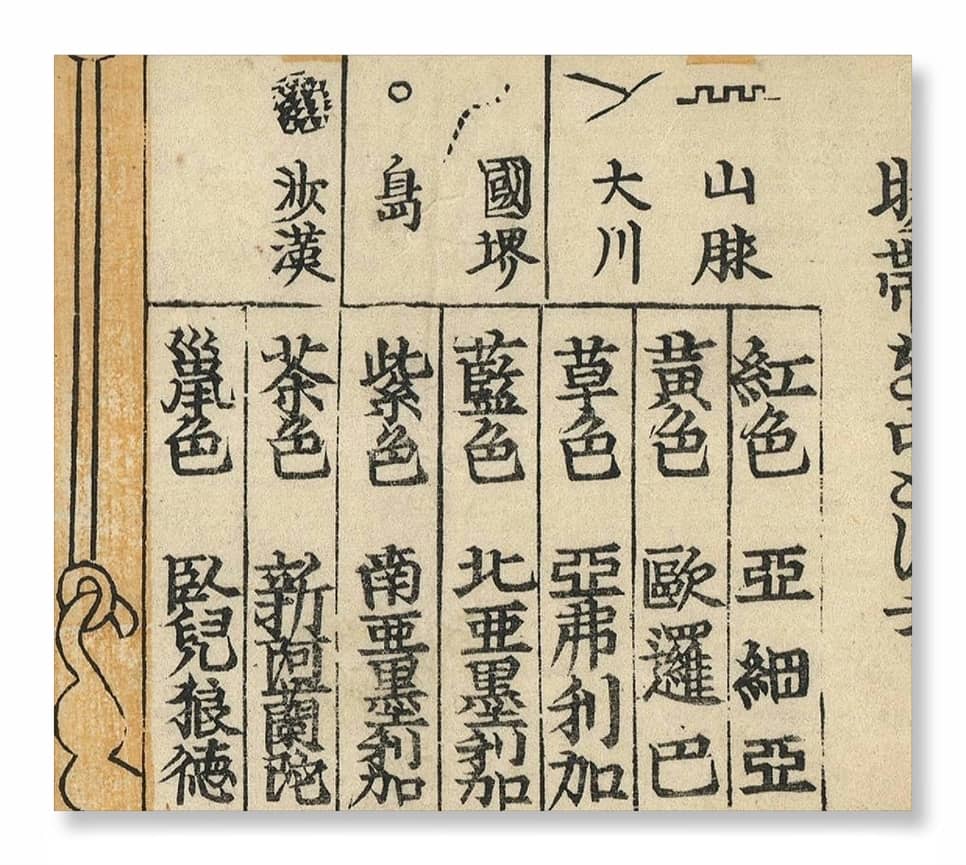 山脉
大川
國堺
島
沙漠
紅色 亞細亞
黃色 歐邏巴
草色 亞弗利加
藍色 北亜墨利加
紫色 南亜墨利加
茶色 新阿蘭陀
鼠色 臥兒狼徳